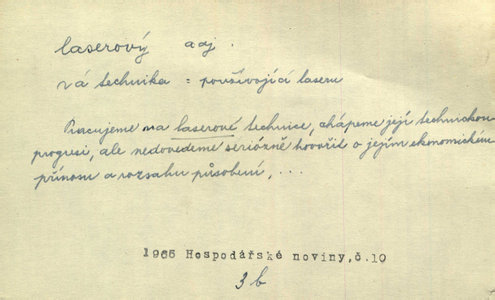 laserový adj.
vá technika = používající laseru
Pracujeme na laserové technice, chápeme její technickou
progresi, ale nedovedeme seriózně hovořit o jejím ekonomickém
přínosu a rozsahu působení, ...
1965 Hospodářské noviny, č.10
3b